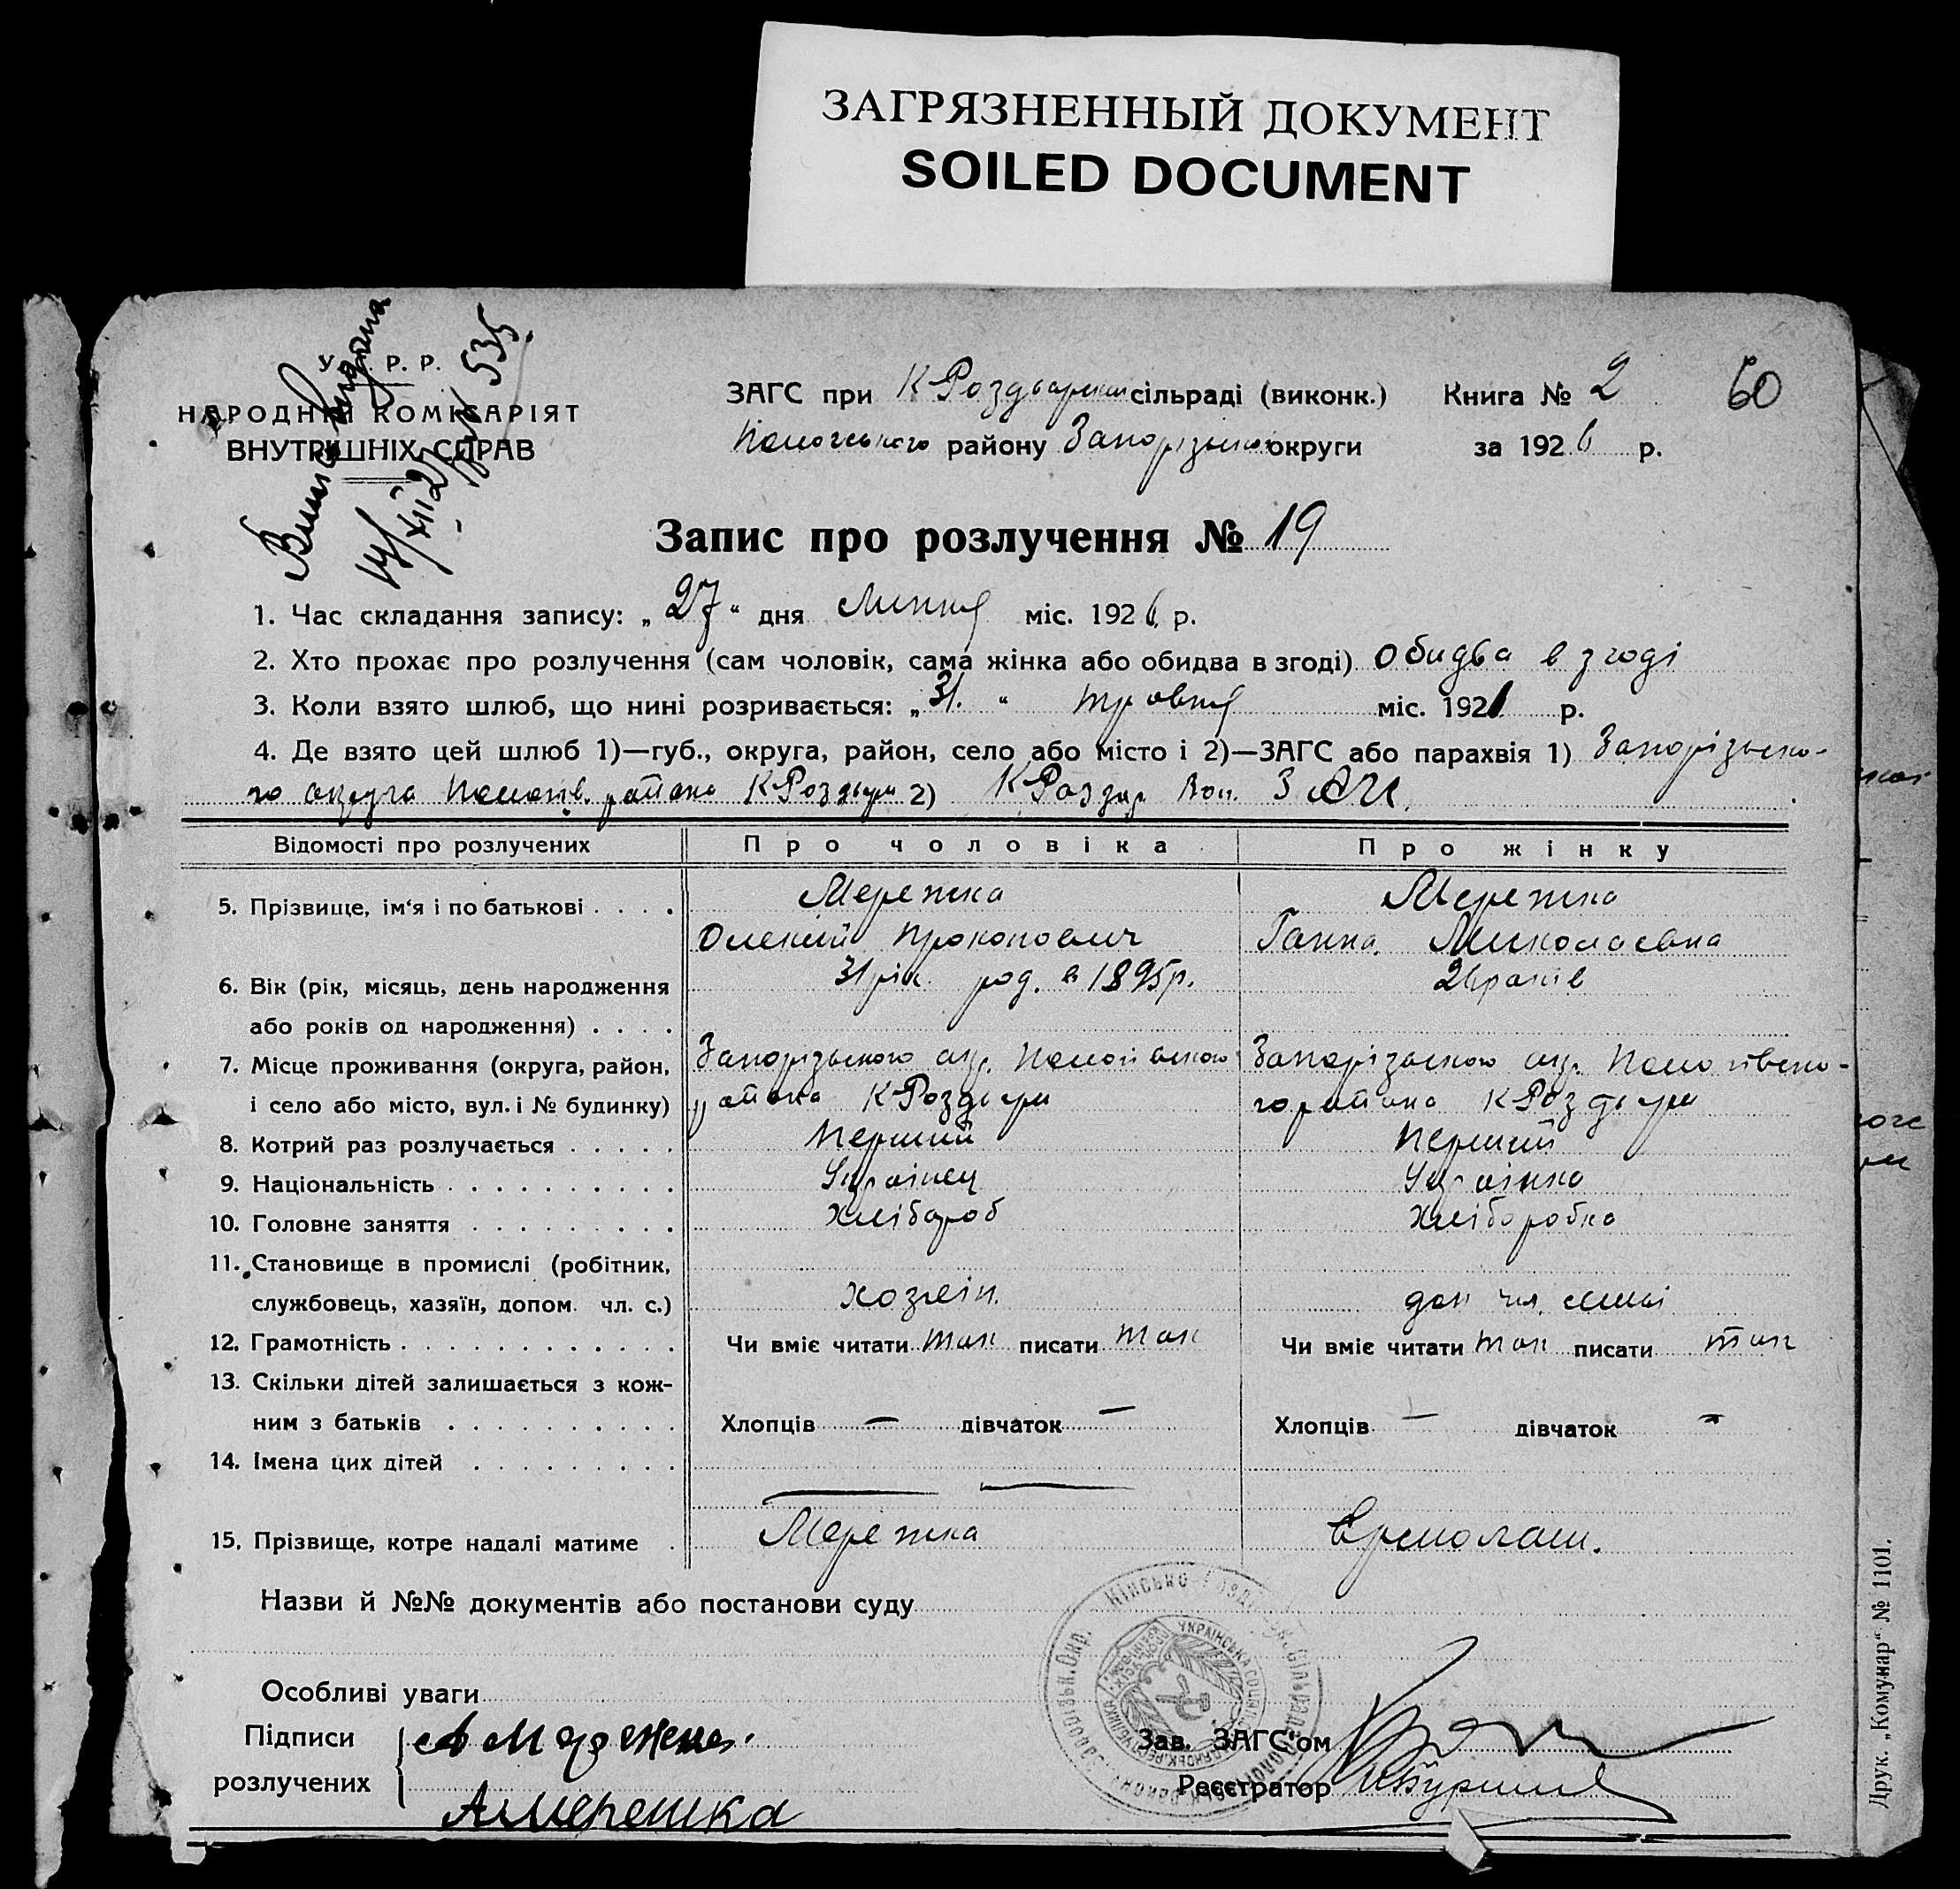 ЗАГРЯЗНЕННЫЙ ДОКУМЕНТ
SOILED DOCUMENT
У. Р. Р.
НАРОДНІЙ КОМІСАРІЯТ
ВНУТРІШНІХ СПРАВ
535
ЗАГС при К Роздорській сільраді (виконк.) Книга № 2
60
Пологського району Запорізької округи за 1926 р.
Запис про розлучення № 19
1. Час складання запису: „27“ дня Липня міс. 1926 р.
2. Хто прохає про розлучення (сам чоловік, сама жінка або обидва в згоді) Обидва в згоді
3. Коли взято шлюб, що нині розривається: „31.“ травня міс. 1921 р.
4. Де взято цей шлюб 1)—губ., округа, район, село або місто і 2)—ЗАГС або парахвія 1) Запорізько-
го округа Пологів. района К Роздори 2) К Роздор Вол. ЗАГС.
Відомості про розлучених Про чоловіка Про жінку
5. Прізвище, ім‘я і по батькові . . . . Мережка Мережка
Олексий Прокопович Ганна Миколаєвна
6. Вік (рік, місяць, день народження 31 рік. род. в 1895 р. 26 років
або років од народження) . . . .
7. Місце проживання (округа, район, Запорізького окр. Пологівського Запорізького окр. Пологівсько-
і село або місто, вул. і № будинку) района К Роздори го района К Роздори
8. Котрий раз розлучається . . . . . Перший Перший
9. Національність . . . . . . . . . . Українец Українка
10. Головне заняття . . . . . . . . . Хлібороб Хліборобка
11. Становище в промислі (робітник,
службовець, хазяїн, допом. чл. с.) хозяін. доп чл. семьі
12. Грамотність . . . . . . . . . . . . Чи вміє читати так писати так Чи вміє читати так писати так
13. Скільки дітей залишається з кож-
ним з батьків . . . . . . . . . . Хлопців — дівчаток — Хлопців — дівчаток —
14. Імена цих дітей . . . . . . . . .
15. Прізвище, котре надалі матиме . Мережка Ермолаш.
Назви й №№ документів або постанови суду
Особливі уваги
Підписи А Мережка.
розлучених
А Мережка
Зав. ЗАГС‘ом
Реєстратор
Друк. „Комунар“ № 1101.